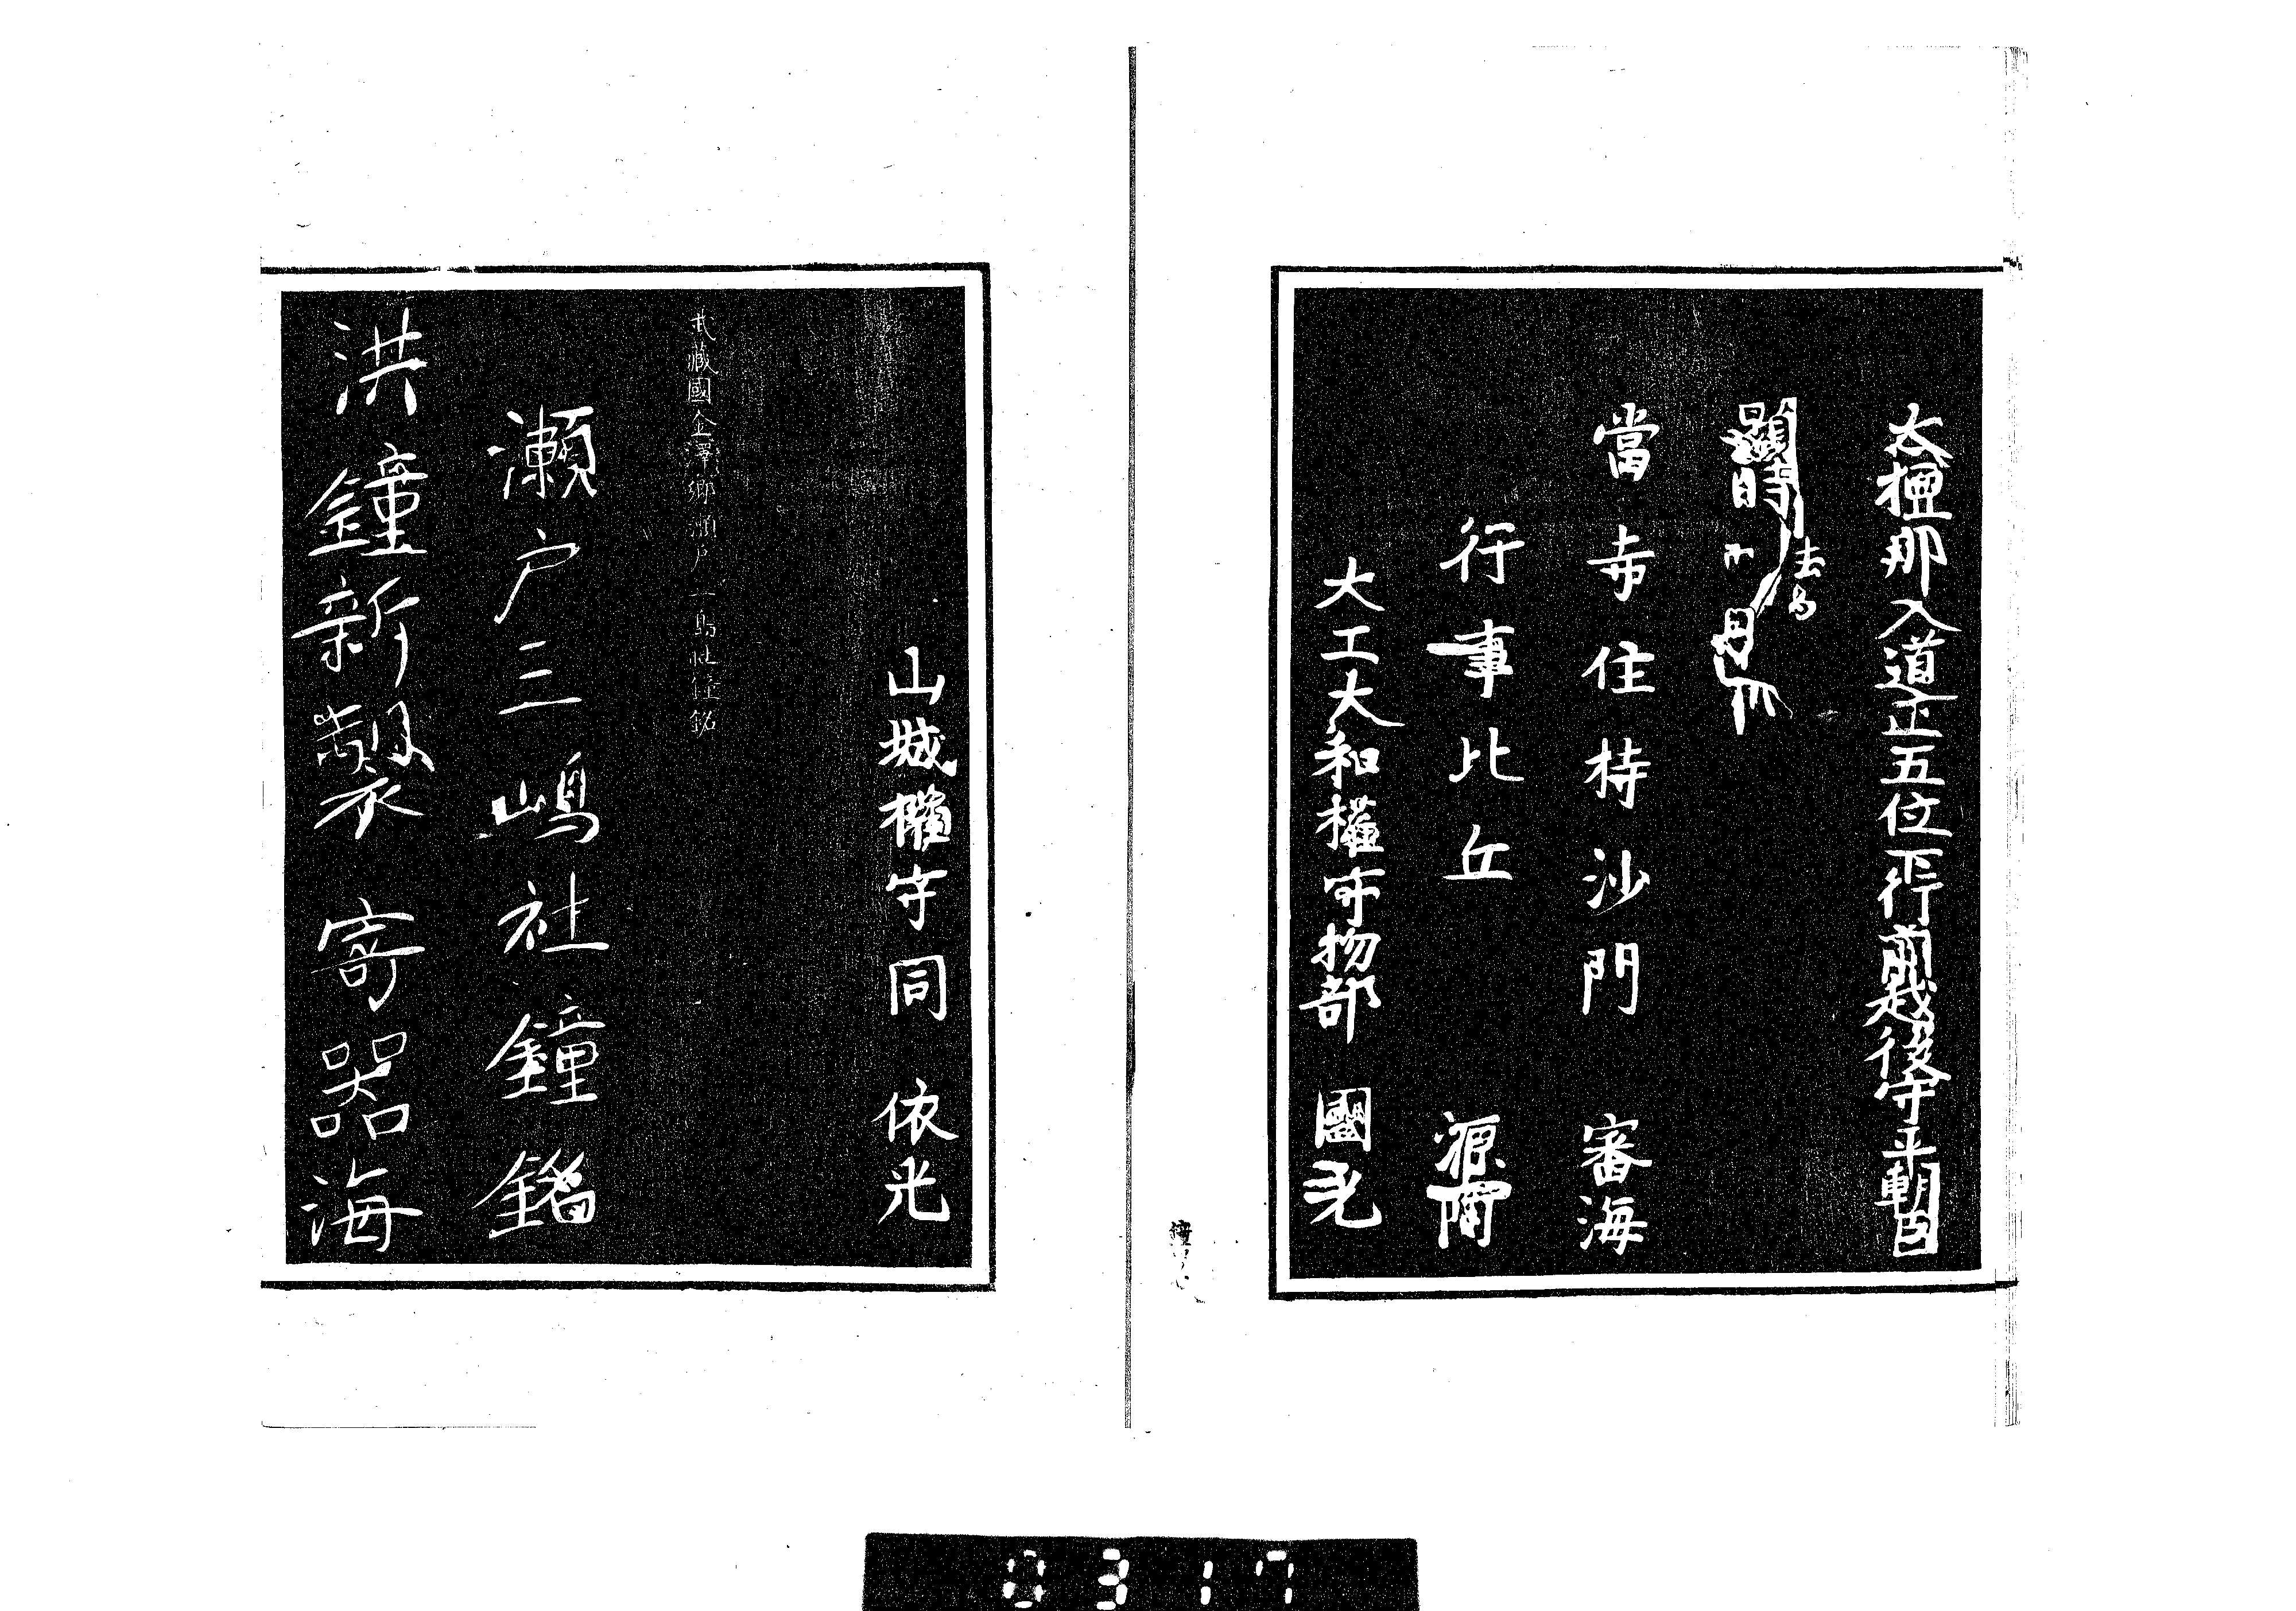 大檀那入道正五位下行前越後守平朝臣
顯時 法名
當寺住持沙門 審海
行事比丘 源阿
大工大和權守物部 國光
山城權守同 依光
武藏國金澤鄉瀬戸 島社鐘銘
瀬戸三嶋社鐘銘
洪鐘新製寄器海
0317